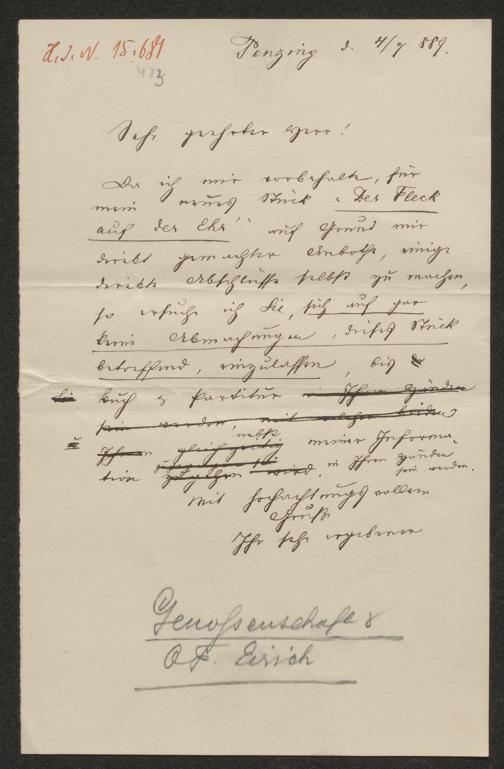 H.I.N. 15.681
Penzing d. 4/7 889.
Sehr geehrter Herr!
Da ich mir vorbehalte, für
mein neues Stück „Der Fleck
auf der Ehr“ auf Grund mir
direkt gemachter Anbothe, einige
direkte Abschlüsse selbst zu machen,
so ersuche ich Sie, sich auf gar
keine Abmachungen, dieses Stück
betreffend, einzulassen, bis
Buch & Partitur in Ihren Händen
sein werden, mit welchen beiden
Ihnen gleichzeitig nebst meiner Informa-
tion zugehen wird. in Ihren Händen
sein werden.
Mit hochachtungsvollem
Gruße
Ihr sehr ergebener
Genossenschaft &
O. F. Eirich